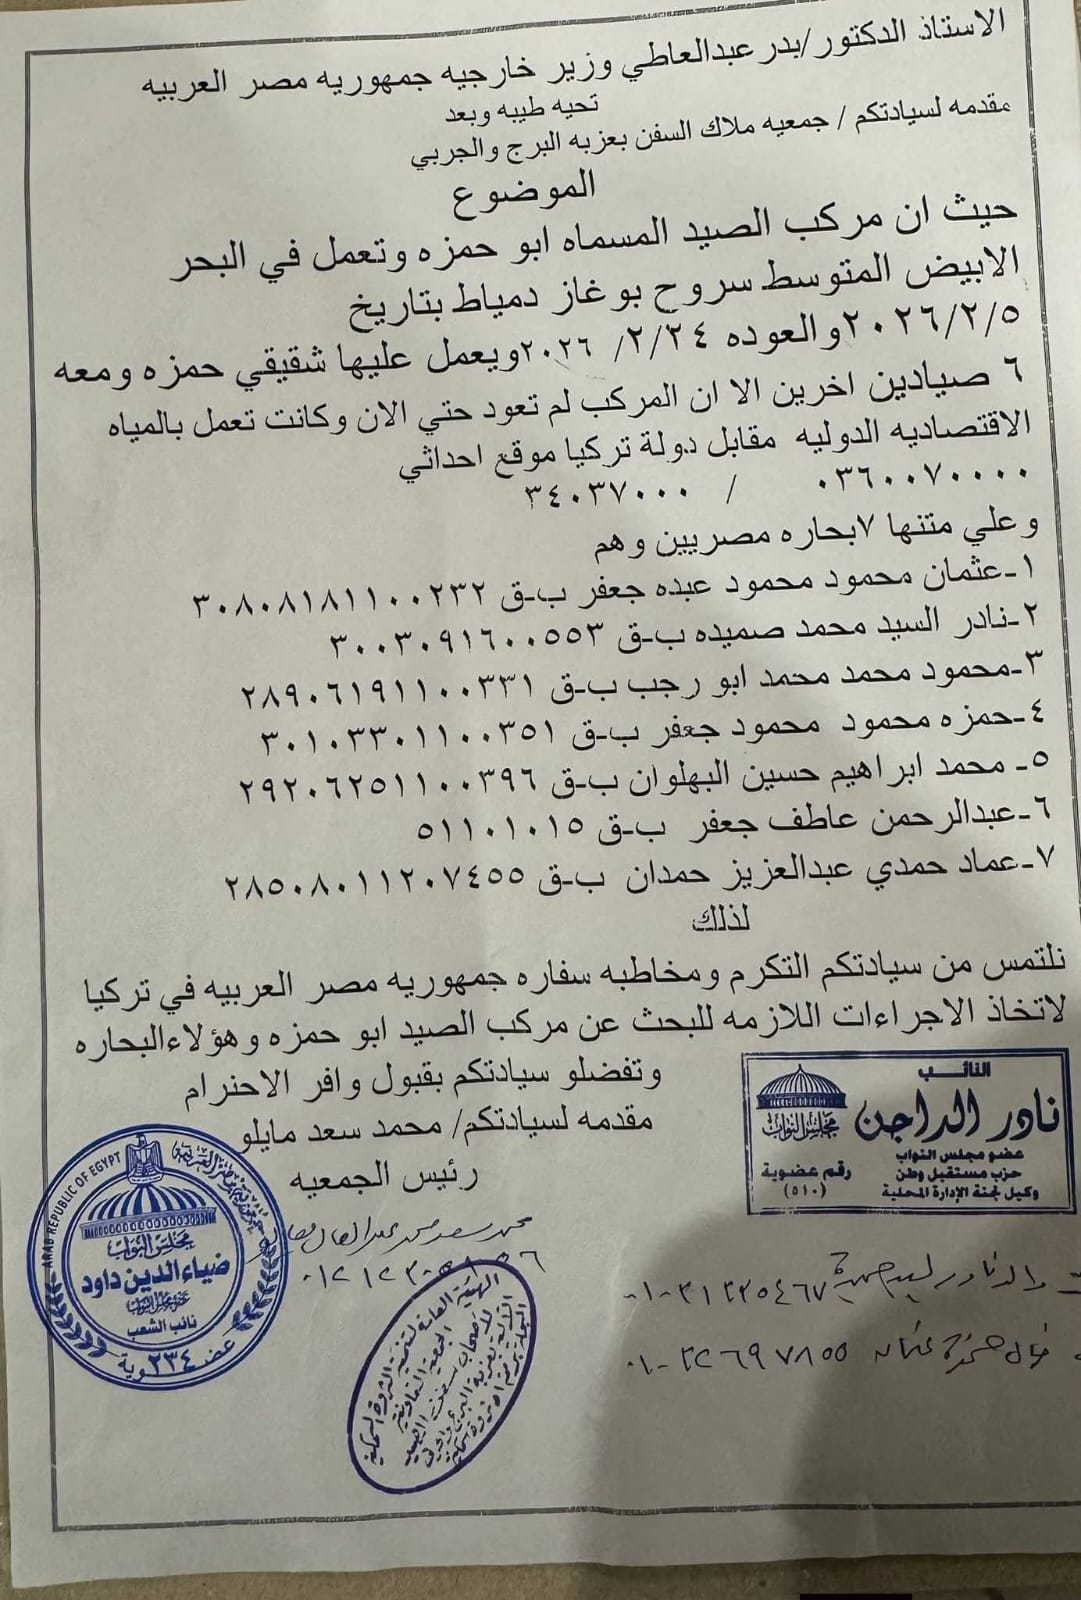 الاستاذ الدكتور/بدر عبدالعاطي وزير خارجيه جمهوريه مصر العربيه
تحيه طيبه وبعد
مقدمه لسيادتكم / جمعيه ملاك السفن بعزبه البرج والجربي
الموضوع
حيث ان مركب الصيد المسماه ابو حمزه وتعمل في البحر
الابيض المتوسط سروح بوغاز دمياط بتاريخ
٢٠٢٦/٢/٥ والعوده ٢/٢٤/ ٢٠٢٦ ويعمل عليها شقيقي حمزه ومعه
٦ صيادين اخرين الا ان المركب لم تعود حتي الان وكانت تعمل بالمياه
الاقتصاديه الدوليه مقابل دولة تركيا موقع احداثي
٠٣٦٠٠٧٠٠٠٠ / ٣٤٠٣٧٠٠٠
وعلي متنها ٧بحاره مصريين وهم
١-عثمان محمود محمود عبده جعفر ب-ق ٣٠٨٠٨١٨١١٠٠٢٣٢
٢-نادر السيد محمد صميده ب-ق ٣٠٠٣٠٩١٦٠٠٥٥٣
٣-محمود محمد محمد ابو رجب ب-ق ٢٨٩٠٦١٩١١٠٠٣٣١
٤-حمزه محمود محمود جعفر ب-ق ٣٠١٠٣٣٠١١٠٠٣٥١
٥- محمد ابراهيم حسين البهلوان ب-ق ٢٩٢٠٦٢٥١١٠٠٣٩٦
٦-عبدالرحمن عاطف جعفر ب-ق ٥١١٠١٠١٥
٧-عماد حمدي عبدالعزيز حمدان ب-ق ٢٨٥٠٨٠١١٢٠٧٤٥٥
لذلك
نلتمس من سيادتكم التكرم ومخاطبه سفاره جمهوريه مصر العربيه في تركيا
لاتخاذ الاجراءات اللازمه للبحث عن مركب الصيد ابو حمزه وهؤلاءالبحاره
وتفضلو سيادتكم بقبول وافر الاحنرام
مقدمه لسيادتكم/ محمد سعد مايلو
رئيس الجمعيه
النائب
نادر الداجن
مجلس النواب
عضو مجلس النواب
حزب مستقبل وطن
وكيل لجنة الإدارة المحلية
رقم عضوية
(٥١٠)
ARAB REPUBLIC OF EGYPT
جمهورية مصر العربية
مجلس النواب
ضياء الدين داود
عضو مجلس النواب
نائب الشعب
عضوية ٢٣٤
محمد سعد محمد عبد العال
والد نادر لسيد صميدة
حمزة عثمان
الهيئة العامة لتنمية الثروة السمكية
الجمعية التعاونية